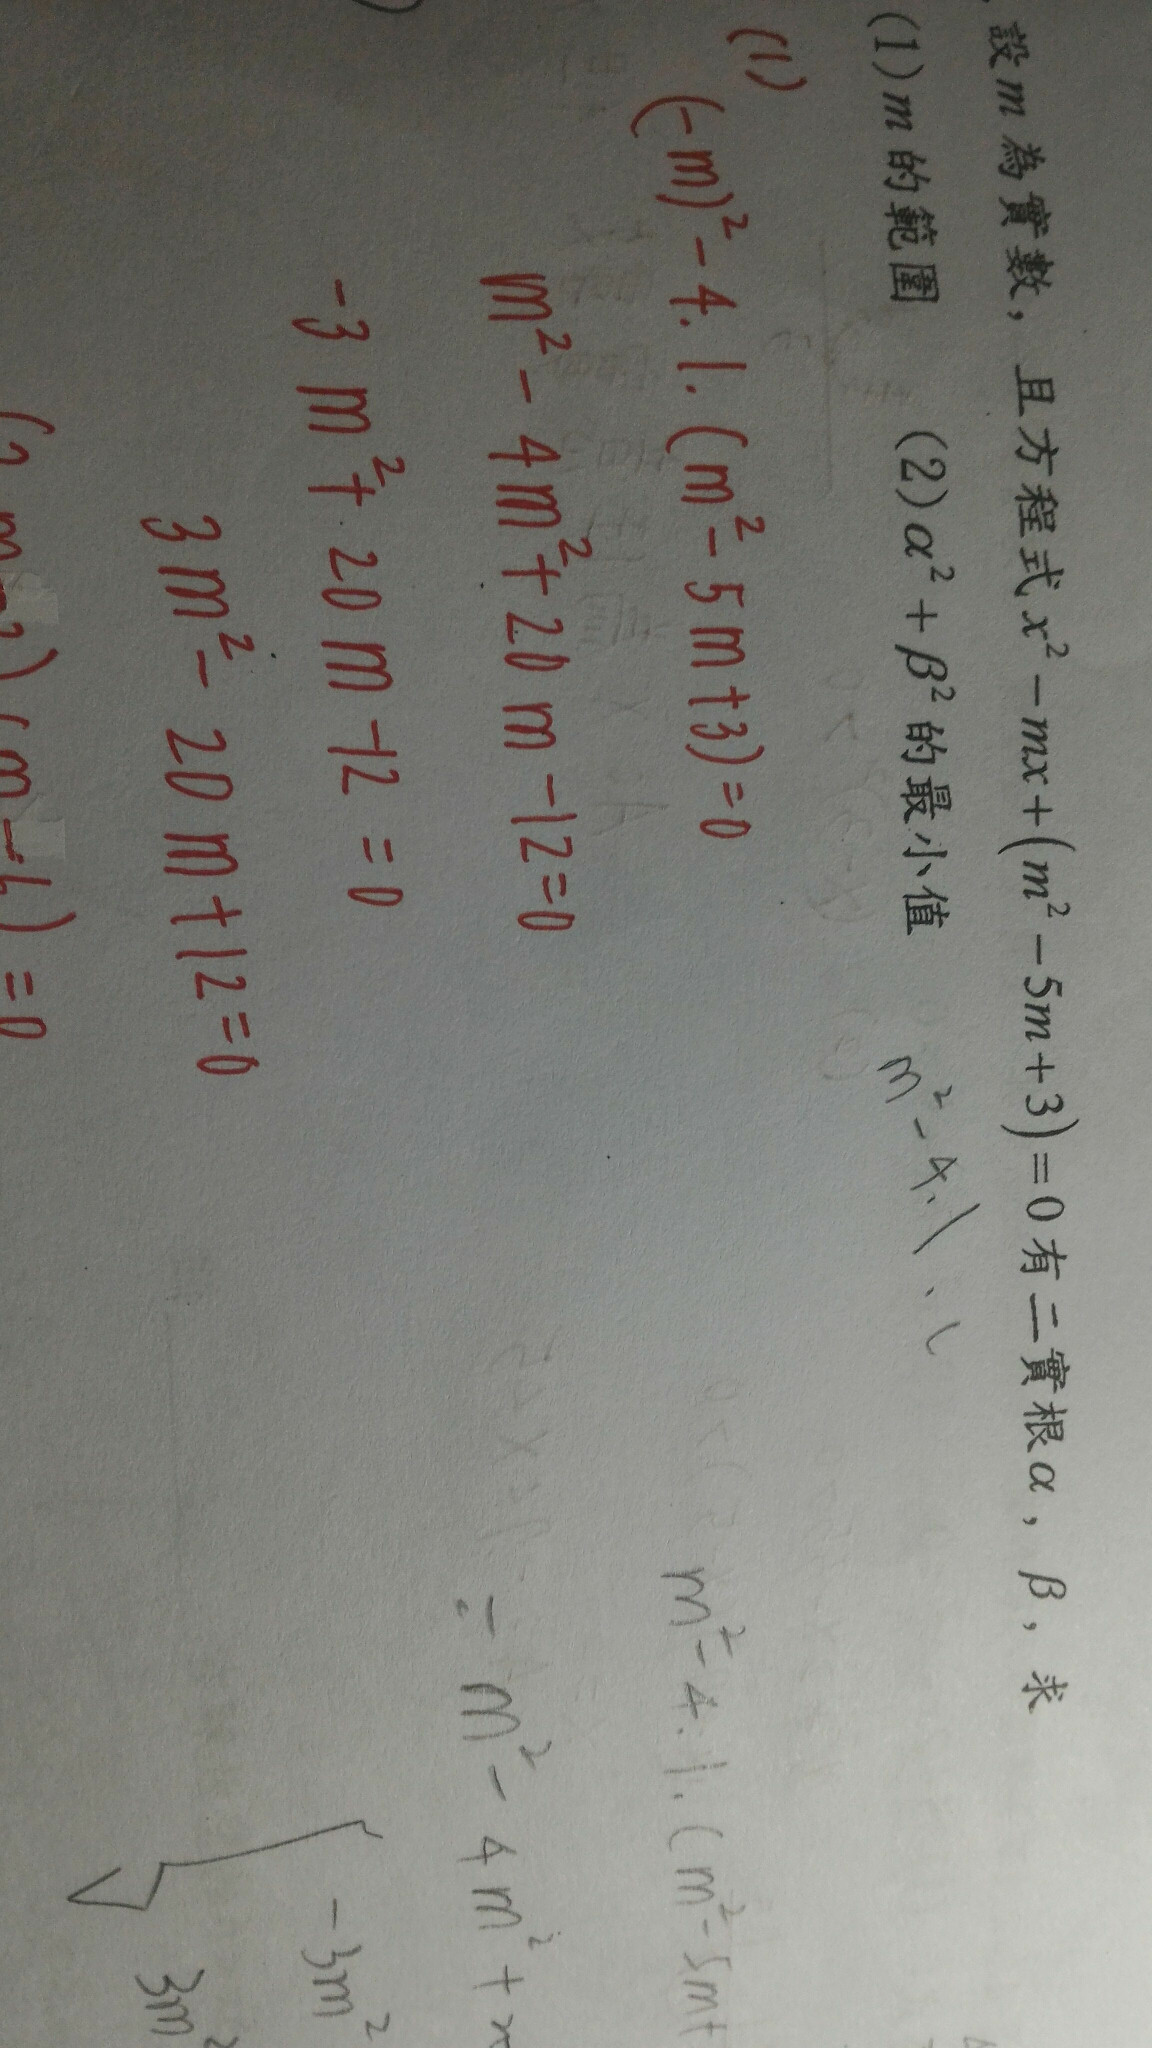 設m為實數，且方程式x²-mx+(m²-5m+3)=0有二實根α，β，求
(1)m的範圍 (2)α²+β²的最小值
m²-4.1.
(1) (-m)²-4.1.(m²-5m+3)=0
m²-4m²+20m-12=0
-3m²+20m-12=0
3m²-20m+12=0
m²-4.1.(m²-5m+
= m²-4m²+
-3m²
3m²